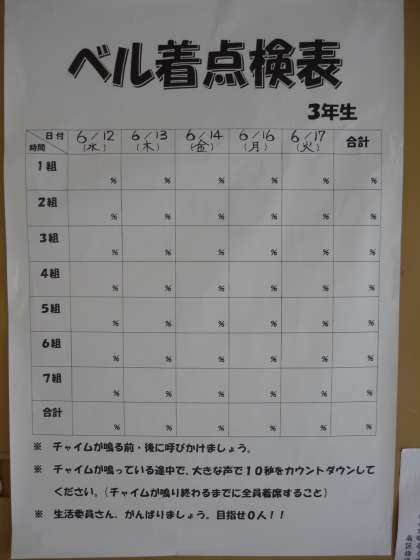 ベル着点検表
3年生
日付 6/12 6/13 6/14 6/16 6/17 合計
時間 (水) (木) (金) (月) (火)
1組 % % % % % %
2組 % % % % % %
3組 % % % % % %
4組 % % % % % %
5組 % % % % % %
6組 % % % % % %
7組 % % % % % %
合計 % % % % % %
※ チャイムが鳴る前・後に呼びかけましょう。
※ チャイムが鳴っている途中で、大きな声で10秒をカウントダウンして
ください。(チャイムが鳴り終わるまでに全員着席すること)
※ 生活委員さん、がんばりましょう。目指せ0人!!